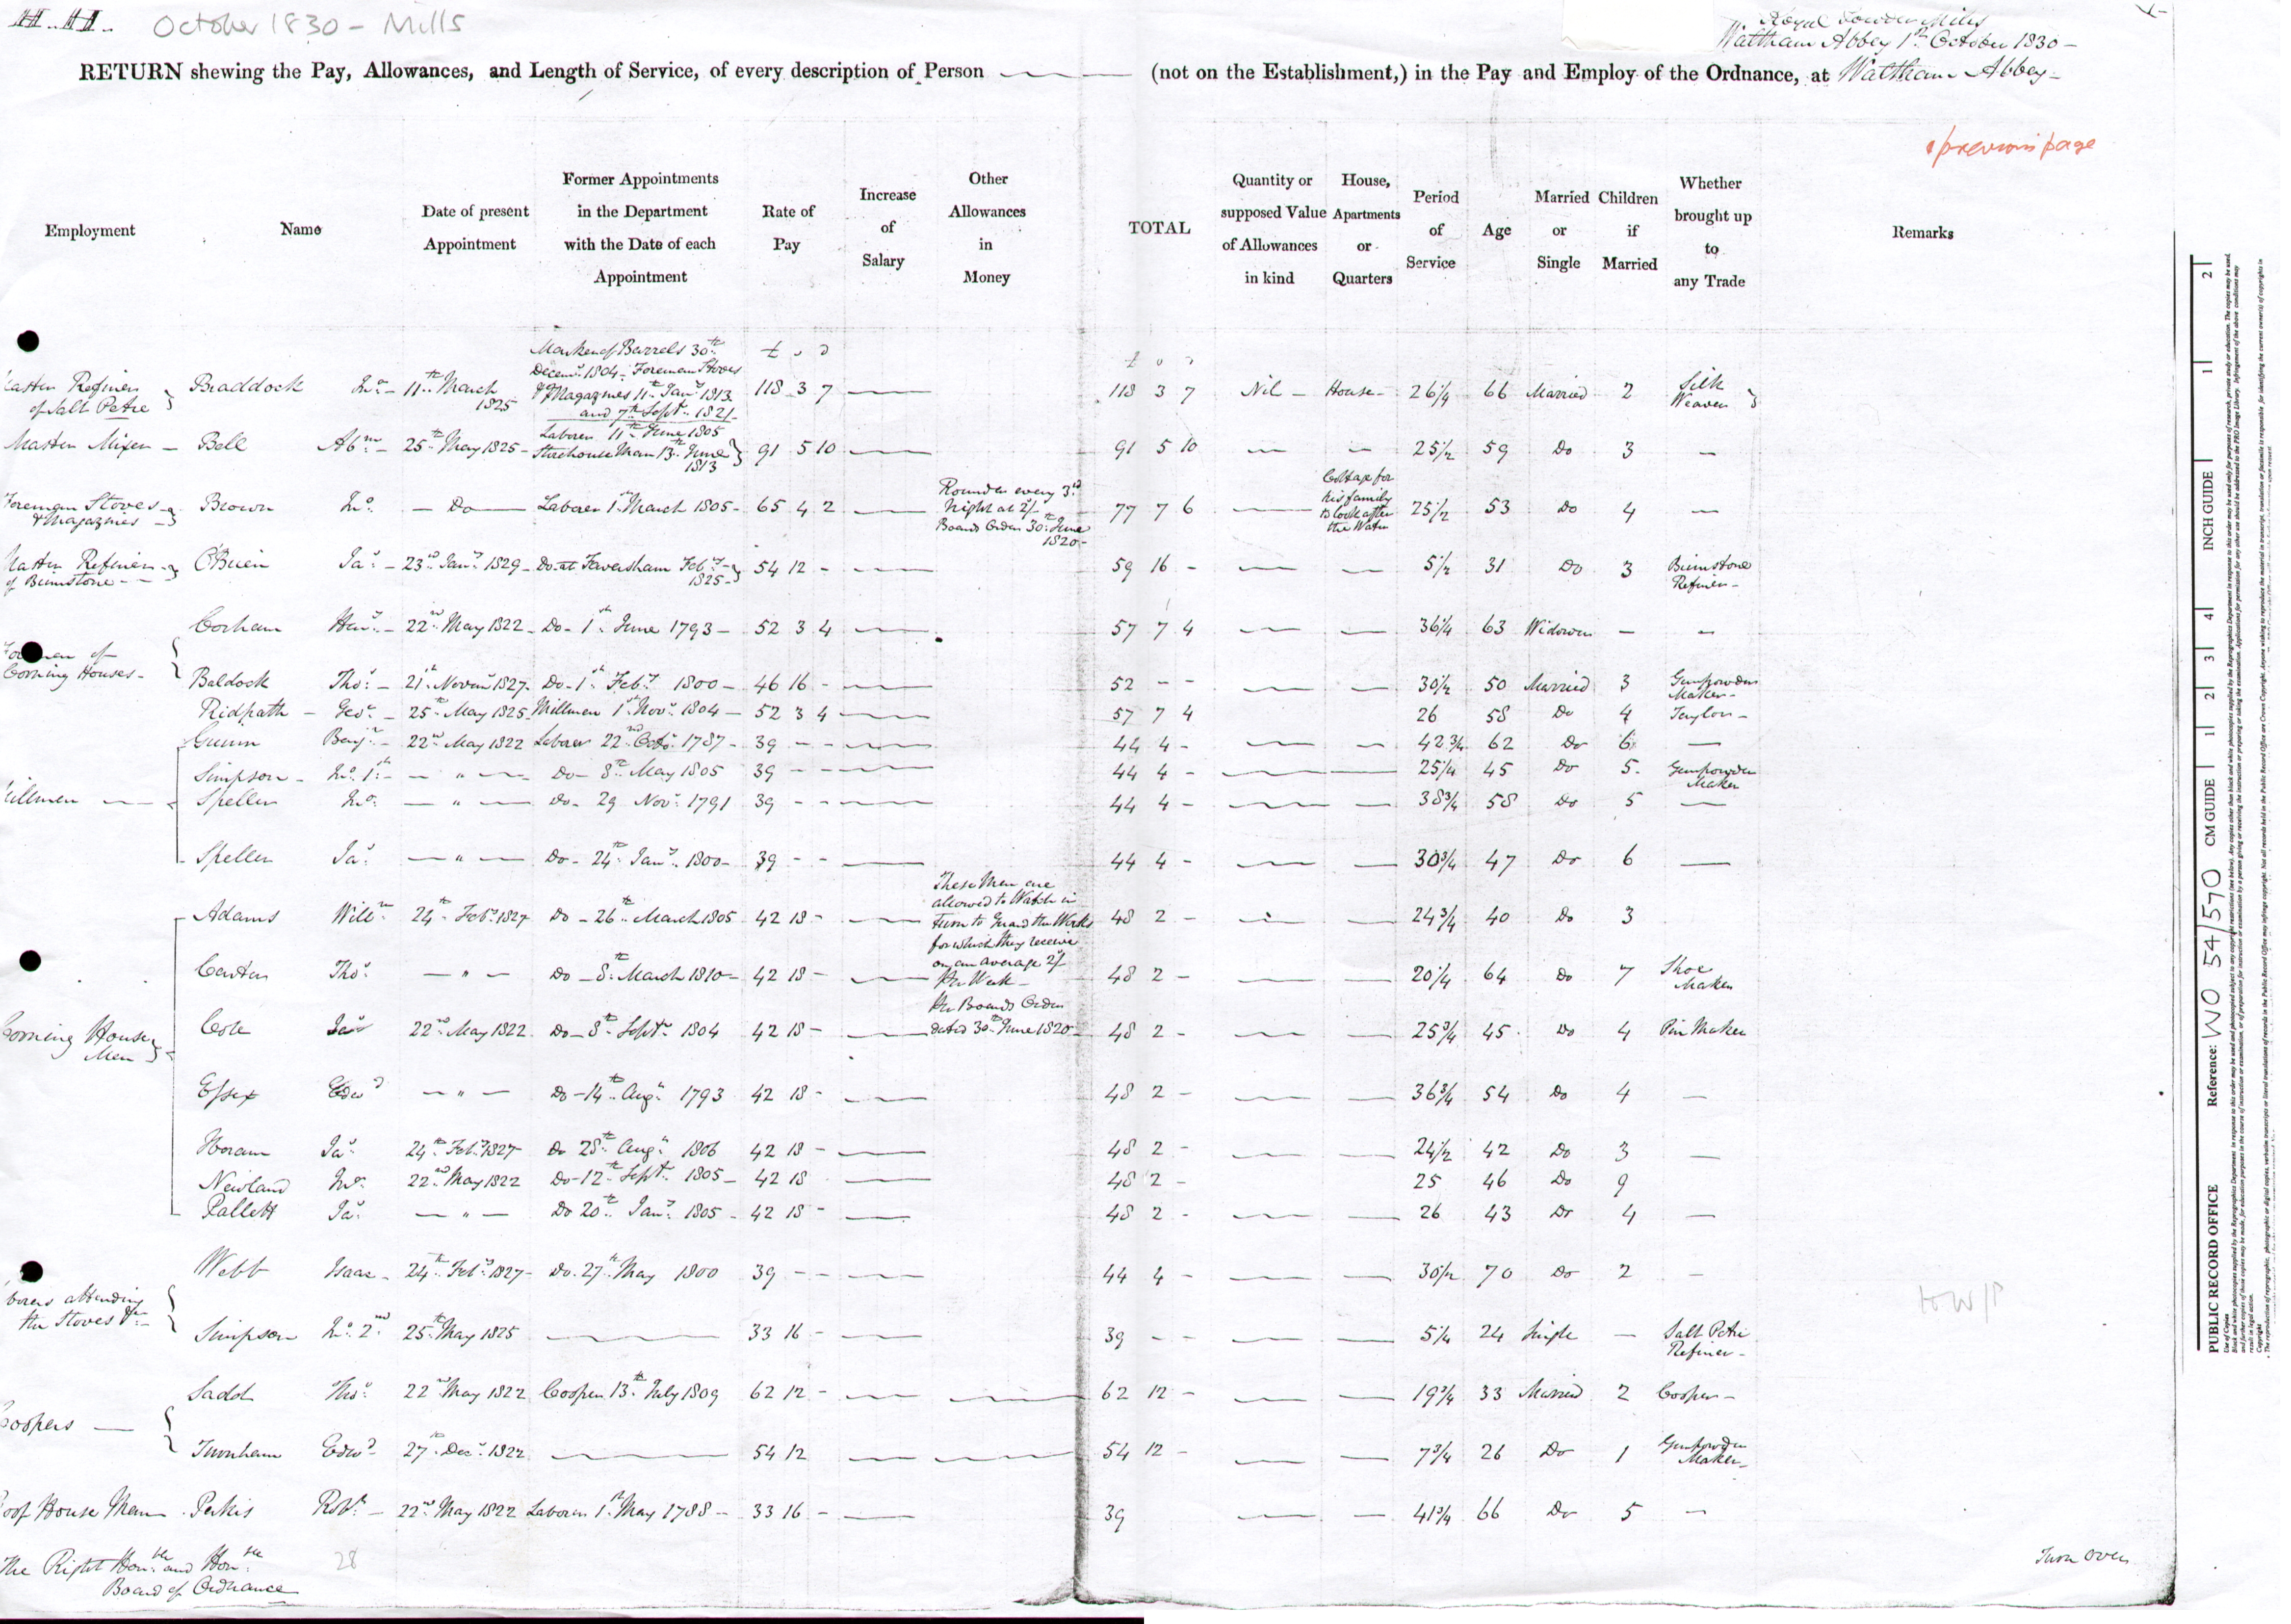 October 1830 - Mills
Royal Powder Mills
Waltham Abbey 1st October 1830 -
RETURN shewing the Pay, Allowances, and Length of Service, of every description of Person (not on the Establishment,) in the Pay and Employ of the Ordnance, at Waltham Abbey -
previous page
Employment Name Date of present Appointment Former Appointments in the Department with the Date of each Appointment Rate of Pay Increase of Salary Other Allowances in Money TOTAL Quantity or supposed Value of Allowances in kind House, Apartments or Quarters Period of Service Age Married or Single Children if Married Whether brought up to any Trade Remarks
Master Refiner of Salt Petre Braddock Jno - 11th March 1825 Marker of Barrels 30th Decemr 1804 - Foreman Stoves & Magazines 11th Jany 1813 and 7th Septr 1821 118 3 7 118 3 7 Nil - House - 26 1/4 66 Married 2 Silk Weaver
Master Mixer - Bell Abm - 25th May 1825 - Laborer 11th June 1805 Storehouse Man 13th June 1813 91 5 10 91 5 10 25 1/2 59 Do 3 -
Foreman Stoves & Magazines Brown Jno - Do - Laborer 1st March 1805 - 65 4 2 Rounder every 3rd Night at 2/- Boards Order 30th June 1820 - 77 7 6 Cottage for his family to look after the Water 25 1/2 53 Do 4 -
Master Refiner of Brimstone - O'Brien Jas - 23rd Jany 1829 - Do at Faversham Feby 1825 - 54 12 - 59 16 - 5 1/2 31 Do 3 Brimstone Refiner -
Foremen of Corning Houses -
Corham Heny - 22nd May 1822 - Do - 1st June 1793 - 52 3 4 57 7 4 36 1/4 63 Widower - -
Baldock Thos - 21st Novemr 1827 - Do - 1st Feby 1800 - 46 16 - 52 - - 30 1/2 50 Married 3 Gunpowder Maker -
Ridpath - Geo - 25th May 1825 Millman 1st Novr 1804 - 52 3 4 57 7 4 26 58 Do 4 Taylor -
Millmen -
Gunn Benjn - 22nd May 1822 Laborer 22nd Octr 1787 - 39 - - 44 4 - 42 3/4 62 Do 6 -
Simpson - Jno 1st - - " - Do - 8th May 1805 39 - - 44 4 - 25 1/4 45 Do 5 - Gunpowder Maker
Speller Jno - " - Do - 29 Novr 1791 39 - - 44 4 - 38 3/4 58 Do 5 -
Speller Jas - " - Do - 24th Jany 1800 - 39 - - 44 4 - 30 3/4 47 Do 6 -
Corning House Men
These Men are allowed to Watch in turn to Guard the Works for which they receive on an average 2/- Per Week - Per Boards Order dated 30th June 1820 -
Adams Willm 24th Feby 1827 Do - 26th March 1805 42 18 - 48 2 - 24 3/4 40 Do 3
Carter Thos - " - Do - 8th March 1810 - 42 18 - 48 2 - 20 1/4 64 Do 7 Shoe Maker
Cole Jas 22nd May 1822 Do - 8th Septr 1804 42 18 - 48 2 - 25 3/4 45 Do 4 Pin Maker
Essex Edwd - " - Do - 14th Augt 1793 42 18 - 48 2 - 36 3/4 54 Do 4 -
Horam Jas 24th Feby 1827 Do 28th Augt 1806 42 18 - 48 2 - 24 1/2 42 Do 3 -
Newland Jno 22nd May 1822 Do - 12th Septr 1805 - 42 18 48 2 - 25 46 Do 9
Pallett Jas - " - Do 20th Jany 1805 - 42 18 - 48 2 - 26 43 Do 4 -
attending the Stoves &c -
Webb Isaac - 24th Feby 1827 - Do 27th May 1800 39 - - 44 4 - 30 1/2 70 Do 2 -
Simpson Jno 2nd 25th May 1825 33 16 - 39 - - 5 1/4 24 Single - Salt Petre Refiner -
Coopers -
Sadd Thos 22nd May 1822 Cooper 13th July 1809 62 12 - 62 12 - 19 3/4 33 Married 2 Cooper -
Turnham Edwd 27th Decr 1822 54 12 54 12 - 7 3/4 26 Do 1 Gunpowder Maker -
Proof House Man Perkis Robt - 22nd May 1822 Laborer 1st May 1788 - 33 16 - 39 41 3/4 66 Do 5 -
to W/P
The Right Honble and Honble Board of Ordnance
28
Turn over
PUBLIC RECORD OFFICE Reference: WO 54/570 CM GUIDE INCH GUIDE